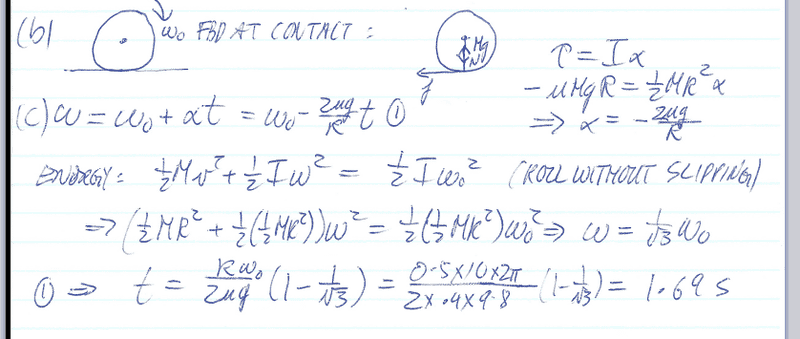 (b) ω₀ FBD AT CONTACT :
Mg N f
τ = Iα
-μMgR = ½MR²α
⇒ α = -2μg/R
(c) ω = ω₀ + αt = ω₀ - 2μg/R t ①
ENERGY: ½Mv² + ½Iω² = ½Iω₀² (ROLL WITHOUT SLIPPING)
⇒ (½MR² + ½(½MR²))ω² = ½(½MR²)ω₀² ⇒ ω = 1/√3 ω₀
① ⇒ t = Rω₀/2μg (1 - 1/√3) = 0.5×10×2π/2×.4×9.8 (1 - 1/√3) = 1.69 s